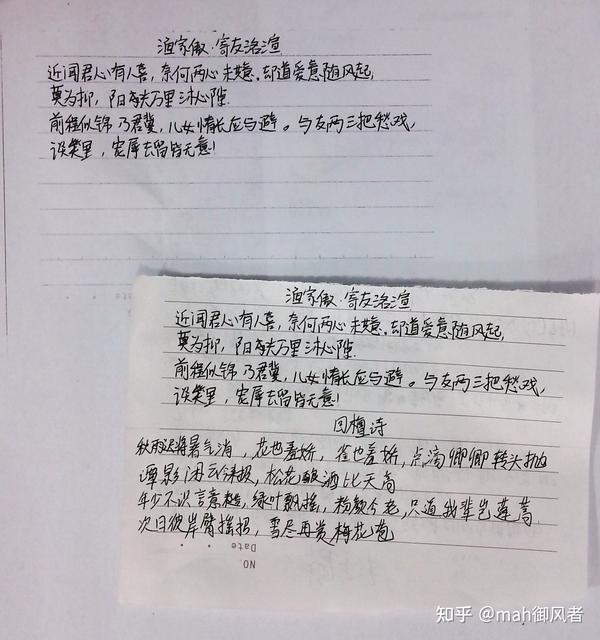 渔家傲·寄友洛渲
近闻君心有人喜,奈何两心未如意。却道爱意随风起,
莫为抑,阳春万里沐心隙.
前程似锦乃君冀,儿女情长应与避。与友两三把愁戏,
谈笑里,宠辱去留皆无意!
渔家傲·寄友洛渲
近闻君心有人喜,奈何两心未如意.却道爱意随风起,
莫为抑,阳春万里沐心隙.
前程似锦乃君冀,儿女情长应与避。与友两三把愁戏,
谈笑里,宠辱去留皆无意!
回 诗
秋雨迟将暑气消,花也羞娇,雀也羞娇,点滴卿卿转头抛
潭影闲云 ,松花酿酒比天高
年少不识言意 ,绿叶飘摇,粉 今 ,只道我辈岂蓬蒿
次日彼岸臂摇招,雪尽再赏梅花苞
NO.
Date
知乎 @mah御风者